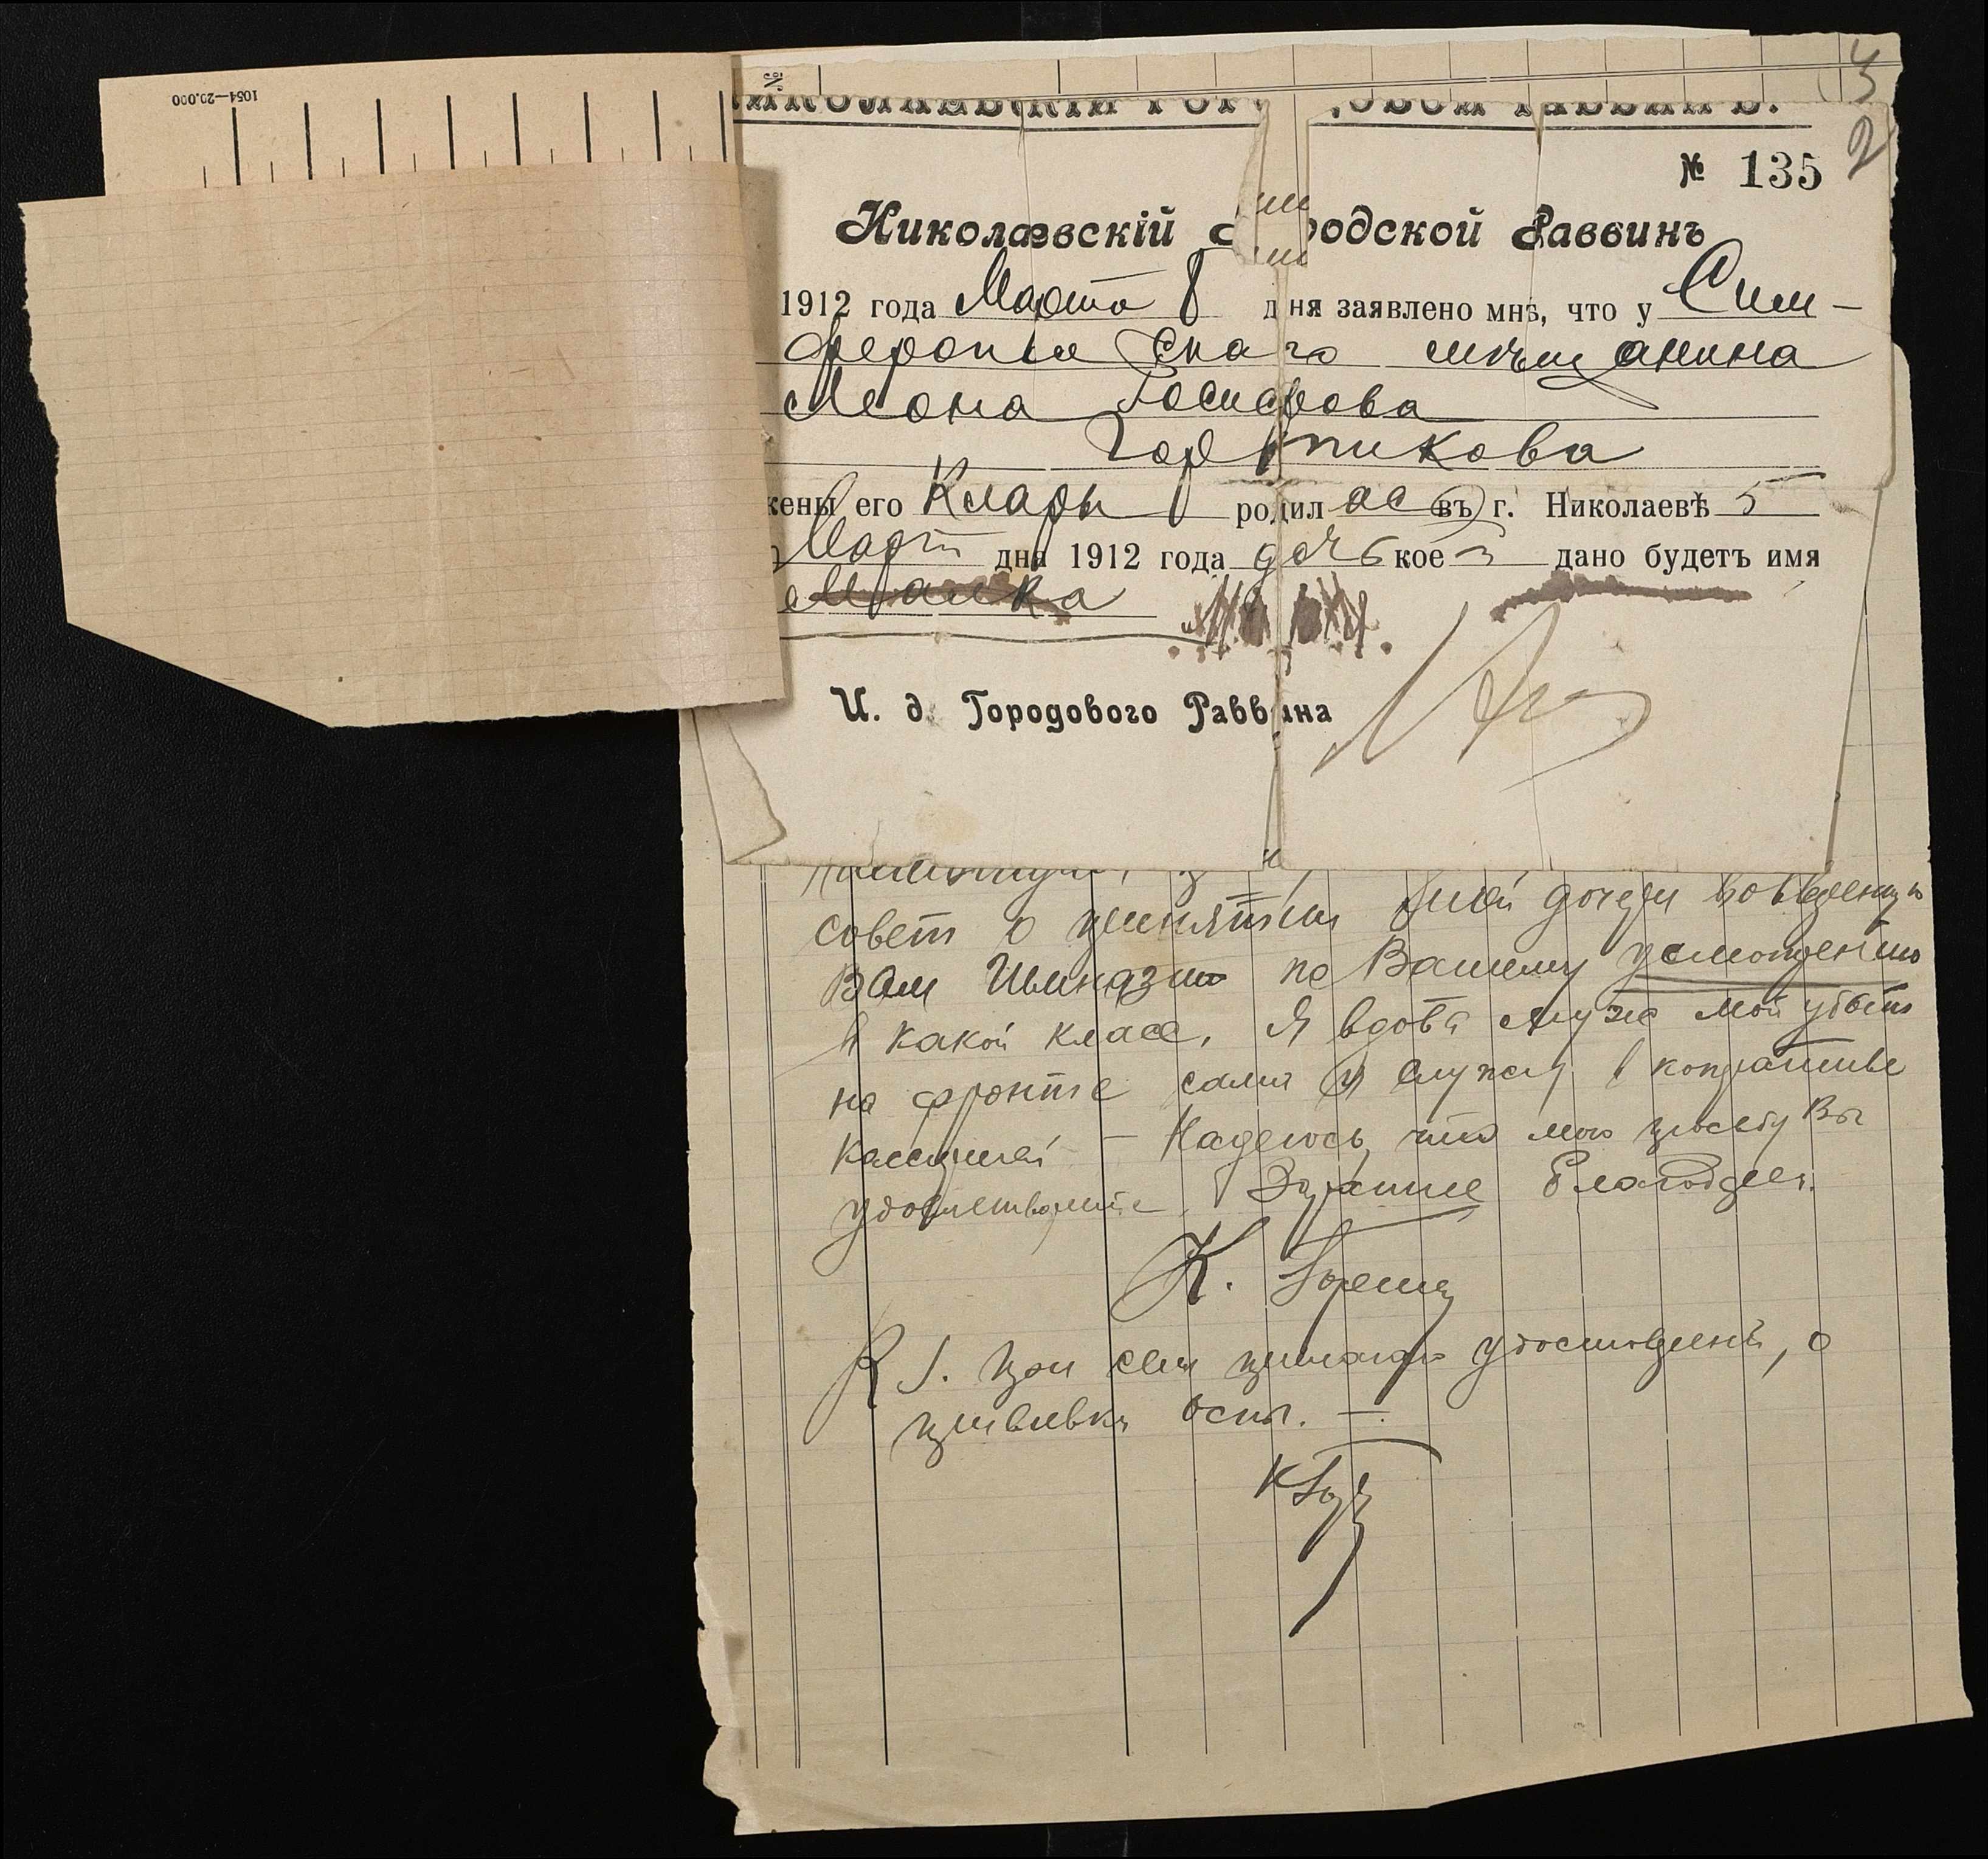 1054—20.000
3
2
№ 135
Николаевскій Городской Раввинъ
1912 года Марта 8 дня заявлено мнѣ, что у Сим-
феропольскаго мѣщанина
Леона Госифова
жены его Клары родилась въ г. Николаевѣ 5
Март дня 1912 года дочь коей дано будетъ имя
Малка
И. д. Городового Раввина
совет о принятии моей дочери во вверенную
Вам Гимназию по Вашему усмотрению
в какой класс. Я вдова муж мой убит
на фронте сама я служу в
Кассиршей — Надеюсь, что мою просьбу Вы
удовлетворите. Заранее благодарен.
К.
P S. При сем прилагаю удостоверен, о
прививки оспы. —